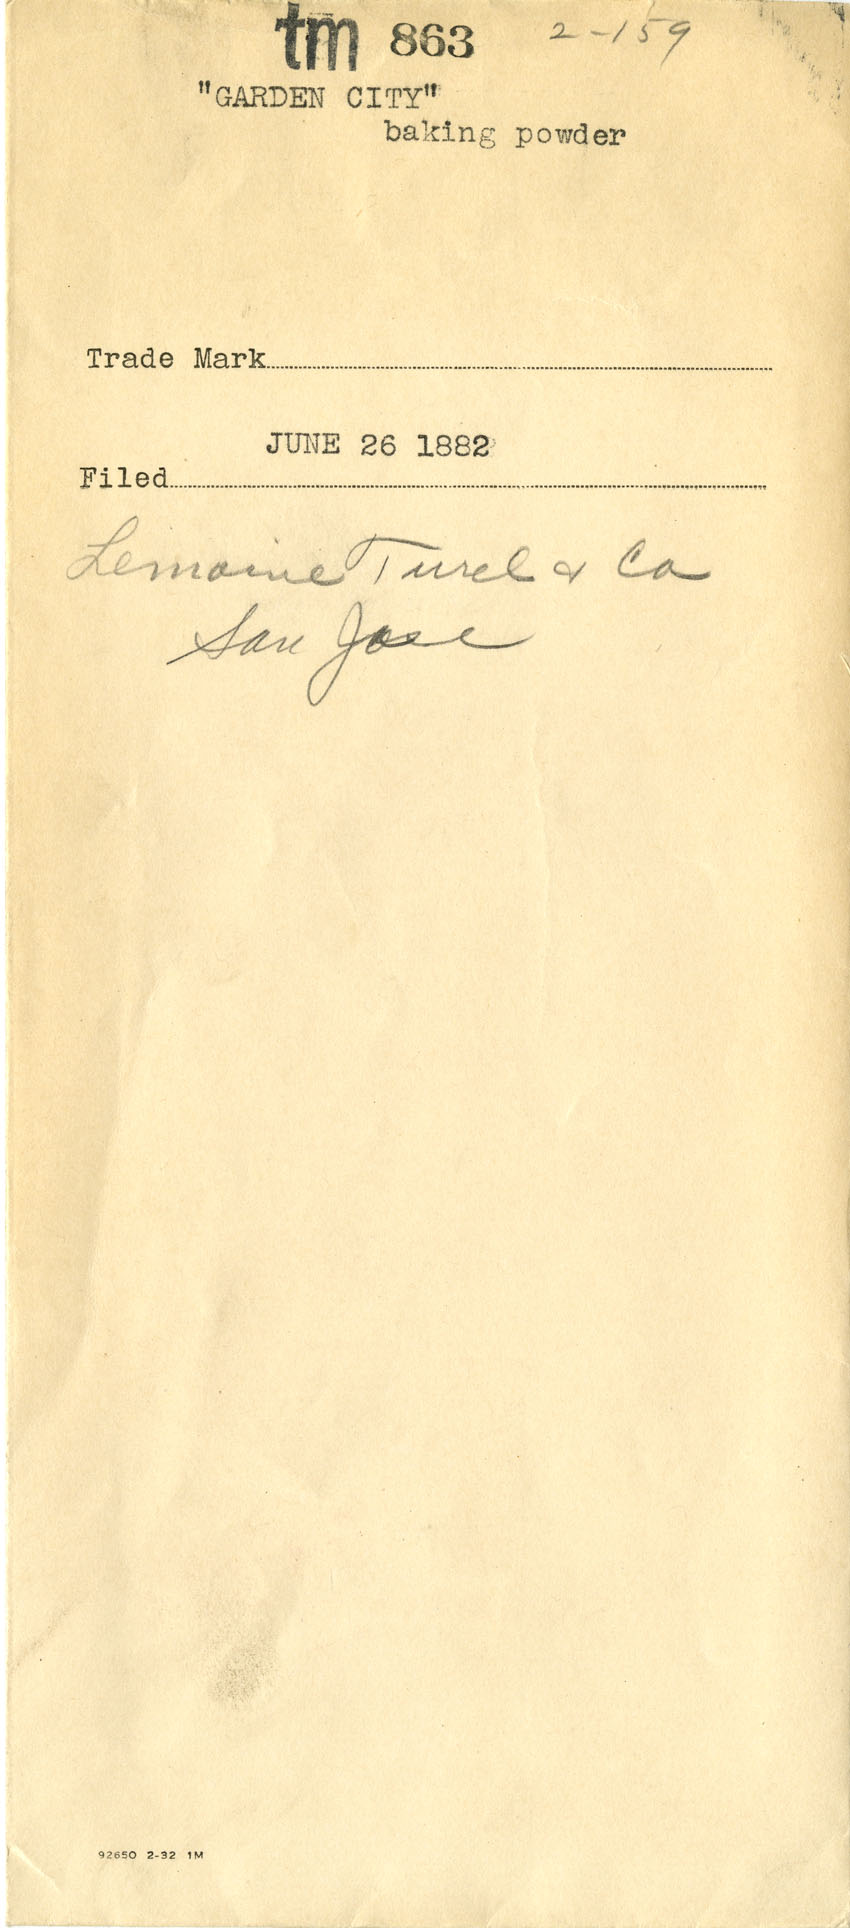 tm 863 2-159
"GARDEN CITY"
baking powder
Trade Mark
JUNE 26 1882
Filed
Lemoine Turel & Co
San Jose
92650 2-32 1M